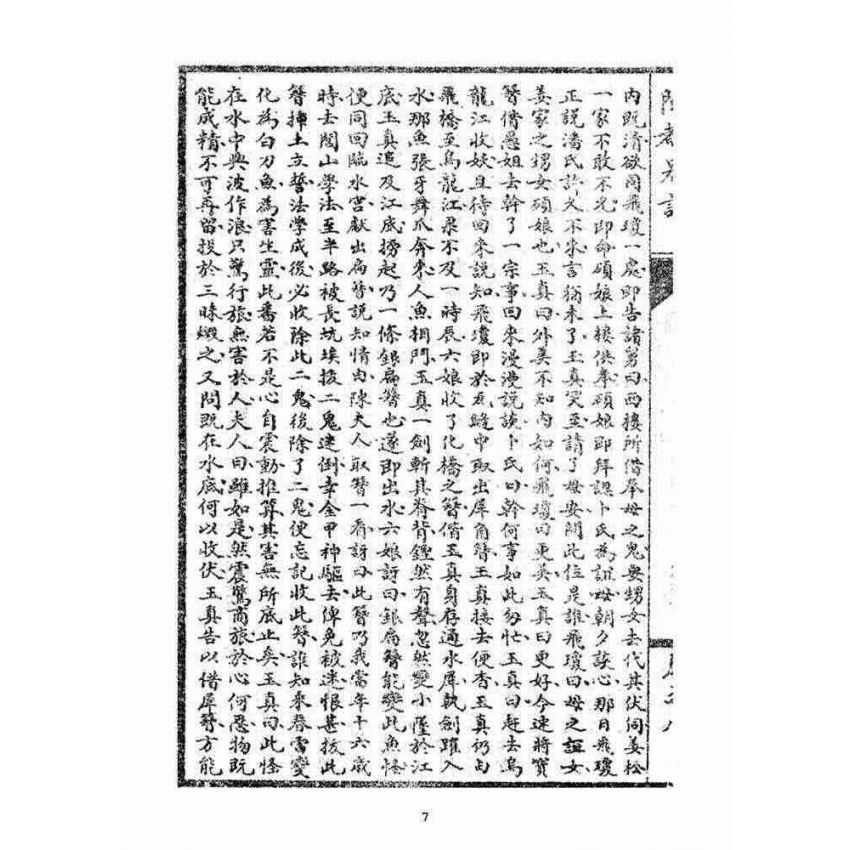 內既清欲同飛瓊一處即告諸舅曰西樓所借奉母之鬼要甥女去代其伏侍姜松
一家不敢不允即命碩娘上樓供奉碩娘即拜認卜氏為誼母朝夕談心那日飛瓊
正說潘氏許久不來言猶未了玉真突至請了母安問此位是誰飛瓊曰母之誼女
姜家之甥女碩娘也玉真曰外美不知內如何飛瓊曰更美玉真曰更好今速將寶
簪借愚姐去幹了一宗事回來漫漫說談卜氏曰幹何事如此匆忙玉真曰赶去烏
龍江收妖且待回來說知飛瓊即於瓦縫中取出犀角簪玉真接去便杳玉真仍由
飛橋至烏龍江果不及一時辰六娘收了化橋之簪偕玉真身存通水犀執劍躍入
水那魚張牙舞爪奔來人魚相鬥玉真一劍斬其脊背鏗然有聲忽然變小墜於江
底玉真追及江底撈起乃一條銀扁簪也遂即出水六娘訝曰銀扁簪能變此魚怪
便同回臨水宮獻出扁簪說知情由陳夫人取簪一看訝曰此簪乃我當年十六歲
時去閭山學法至半路被長坑埃拔二鬼迷倒幸金甲神驅去俾免被迷恨甚拔此
簪插土立誓法學成後必收除此二鬼後除了二鬼便忘記收此簪誰知來春雷變
化為白刀魚為害生靈此番若不是心自震動推算其害無所底止矣玉真曰此怪
在水中興波作浪只驚行旅無害於人夫人曰雖如是然震驚商旅於心何忍物既
能成精不可再留投於三昧煅之又問既在水底何以收伏玉真告以借犀簪方能
7